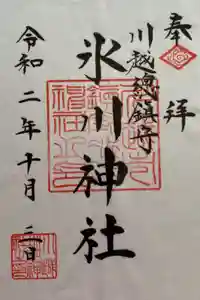 奉拝
川越總鎮守
氷川神社
令和二年十月二日